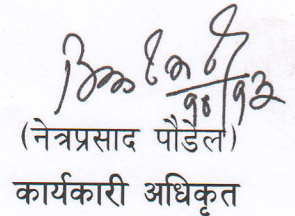 १०/१३
(नेत्रप्रसाद पौडेल)
कार्यकारी अधिकृत